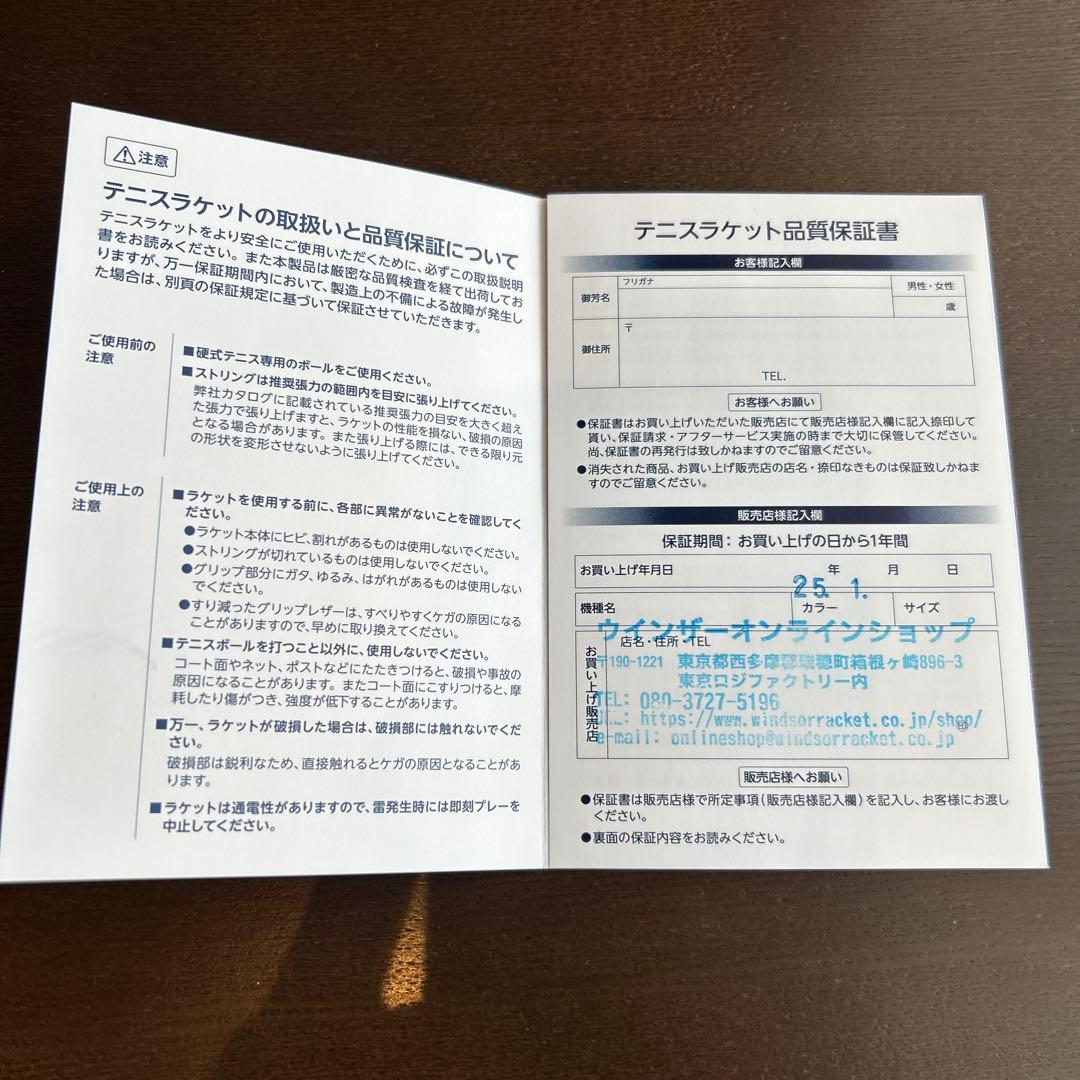 ⚠注意
テニスラケットの取扱いと品質保証について
テニスラケットをより安全にご使用いただくために、必ずこの取扱説明
書をお読みください。また本製品は厳密な品質検査を経て出荷してお
りますが、万一保証期間内において、製造上の不備による故障が発生し
た場合は、別頁の保証規定に基づいて保証させていただきます。
ご使用前の
注意
■硬式テニス専用のボールをご使用ください。
■ストリングは推奨張力の範囲内を目安に張り上げてください。
弊社カタログに記載されている推奨張力の目安を大きく超え
た張力で張り上げますと、ラケットの性能を損ない、破損の原因
となる場合があります。また張り上げる際には、できる限り元
の形状を変形させないように張り上げてください。
ご使用上の
注意
■ラケットを使用する前に、各部に異常がないことを確認してく
ださい。
●ラケット本体にヒビ、割れがあるものは使用しないでください。
●ストリングが切れているものは使用しないでください。
●グリップ部分にガタ、ゆるみ、はがれがあるものは使用しない
でください。
●すり減ったグリップレザーは、すべりやすくケガの原因になる
ことがありますので、早めに取り換えてください。
■テニスボールを打つこと以外に、使用しないでください。
コート面やネット、ポストなどにたたきつけると、破損や事故の
原因になることがあります。またコート面にこすりつけると、摩
耗したり傷がつき、強度が低下することがあります。
■万一、ラケットが破損した場合は、破損部には触れないでくだ
さい。
破損部は鋭利なため、直接触れるとケガの原因となることがあ
ります。
■ラケットは通電性がありますので、雷発生時には即刻プレーを
中止してください。
テニスラケット品質保証書
お客様記入欄
フリガナ
御芳名
男性・女性
歳
御住所
〒
TEL.
お客様へお願い
●保証書はお買い上げいただいた販売店にて販売店様記入欄に記入捺印して
貰い、保証請求・アフターサービス実施の時まで大切に保管してください。
尚、保証書の再発行は致しかねますのでご留意ください。
●消失された商品、お買い上げ販売店の店名・捺印なきものは保証致しかねま
すのでご留意ください。
販売店様記入欄
保証期間：お買い上げの日から1年間
お買い上げ年月日 年 月 日
25. 1.
機種名 カラー サイズ
ウインザーオンラインショップ
お買い上げ販売店
店名・住所・TEL
〒190-1221 東京都西多摩郡瑞穂町箱根ヶ崎896-3
東京ロジファクトリー内
TEL: 080-3727-5196
https://www.windsorracket.co.jp/shop/
e-mail: onlineshop@windsorracket.co.jp
印
販売店様へお願い
●保証書は販売店様で所定事項（販売店様記入欄）を記入し、お客様にお渡し
ください。
●裏面の保証内容をお読みください。